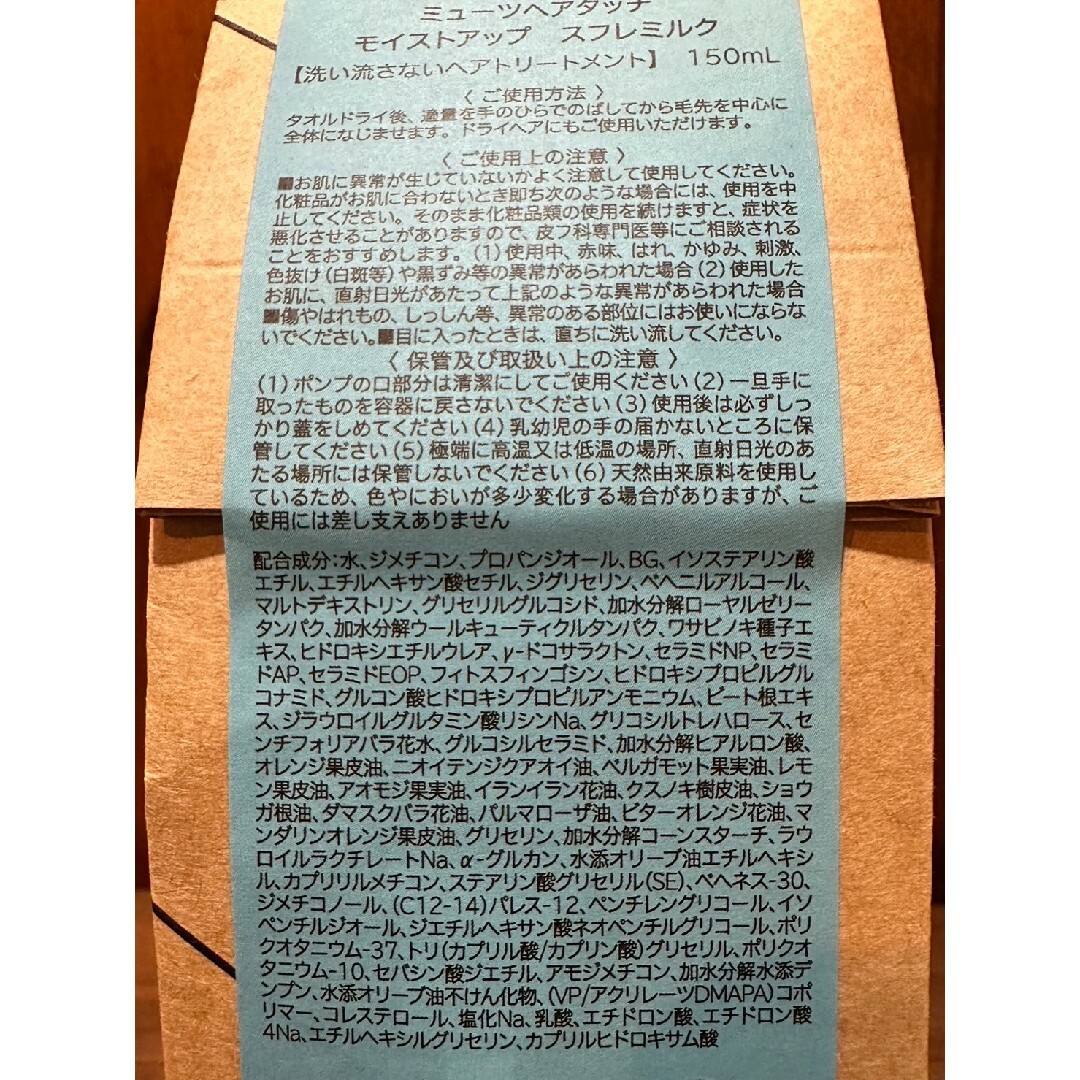 ミューツヘアタッチ
モイストアップ　スフレミルク
【洗い流さないヘアトリートメント】　150mL
〈 ご使用方法 〉
タオルドライ後、適量を手のひらでのばしてから毛先を中心に
全体になじませます。ドライヘアにもご使用いただけます。
〈 ご使用上の注意 〉
■お肌に異常が生じていないかよく注意して使用してください。
化粧品がお肌に合わないとき即ち次のような場合には、使用を中
止してください。そのまま化粧品類の使用を続けますと、症状を
悪化させることがありますので、皮フ科専門医等にご相談される
ことをおすすめします。(1)使用中、赤味、はれ、かゆみ、刺激、
色抜け(白斑等)や黒ずみ等の異常があらわれた場合(2)使用した
お肌に、直射日光があたって上記のような異常があらわれた場合
■傷やはれもの、しっしん等、異常のある部位にはお使いにならな
いでください。■目に入ったときは、直ちに洗い流してください。
〈 保管及び取扱い上の注意 〉
(1)ポンプの口部分は清潔にしてご使用ください(2)一旦手に
取ったものを容器に戻さないでください(3)使用後は必ずしっ
かり蓋をしめてください(4)乳幼児の手の届かないところに保
管してください(5)極端に高温又は低温の場所、直射日光のあ
たる場所には保管しないでください(6)天然由来原料を使用し
ているため、色やにおいが多少変化する場合がありますが、ご
使用には差し支えありません
配合成分:水、ジメチコン、プロパンジオール、BG、イソステアリン酸
エチル、エチルヘキサン酸セチル、ジグリセリン、ベヘニルアルコール、
マルトデキストリン、グリセリルグルコシド、加水分解ローヤルゼリー
タンパク、加水分解ウールキューティクルタンパク、ワサビノキ種子エ
キス、ヒドロキシエチルウレア、γ-ドコサラクトン、セラミドNP、セラミ
ドAP、セラミドEOP、フィトスフィンゴシン、ヒドロキシプロピルグル
コナミド、グルコン酸ヒドロキシプロピルアンモニウム、ビート根エキ
ス、ジラウロイルグルタミン酸リシンNa、グリコシルトレハロース、セ
ンチフォリアバラ花水、グルコシルセラミド、加水分解ヒアルロン酸、
オレンジ果皮油、ニオイテンジクアオイ油、ベルガモット果実油、レモ
ン果皮油、アオモジ果実油、イランイラン花油、クスノキ樹皮油、ショウ
ガ根油、ダマスクバラ花油、パルマローザ油、ビターオレンジ花油、マ
ンダリンオレンジ果皮油、グリセリン、加水分解コーンスターチ、ラウ
ロイルラクチレートNa、α-グルカン、水添オリーブ油エチルヘキシ
ル、カプリリルメチコン、ステアリン酸グリセリル(SE)、ベヘネス-30、
ジメチコノール、(C12-14)パレス-12、ペンチレングリコール、イソ
ペンチルジオール、ジエチルヘキサン酸ネオペンチルグリコール、ポリ
クオタニウム-37、トリ(カプリル酸/カプリン酸)グリセリル、ポリクオ
タニウム-10、セバシン酸ジエチル、アモジメチコン、加水分解水添デ
ンプン、水添オリーブ油不けん化物、(VP/アクリレーツDMAPA)コポ
リマー、コレステロール、塩化Na、乳酸、エチドロン酸、エチドロン酸
4Na、エチルヘキシルグリセリン、カプリルヒドロキサム酸